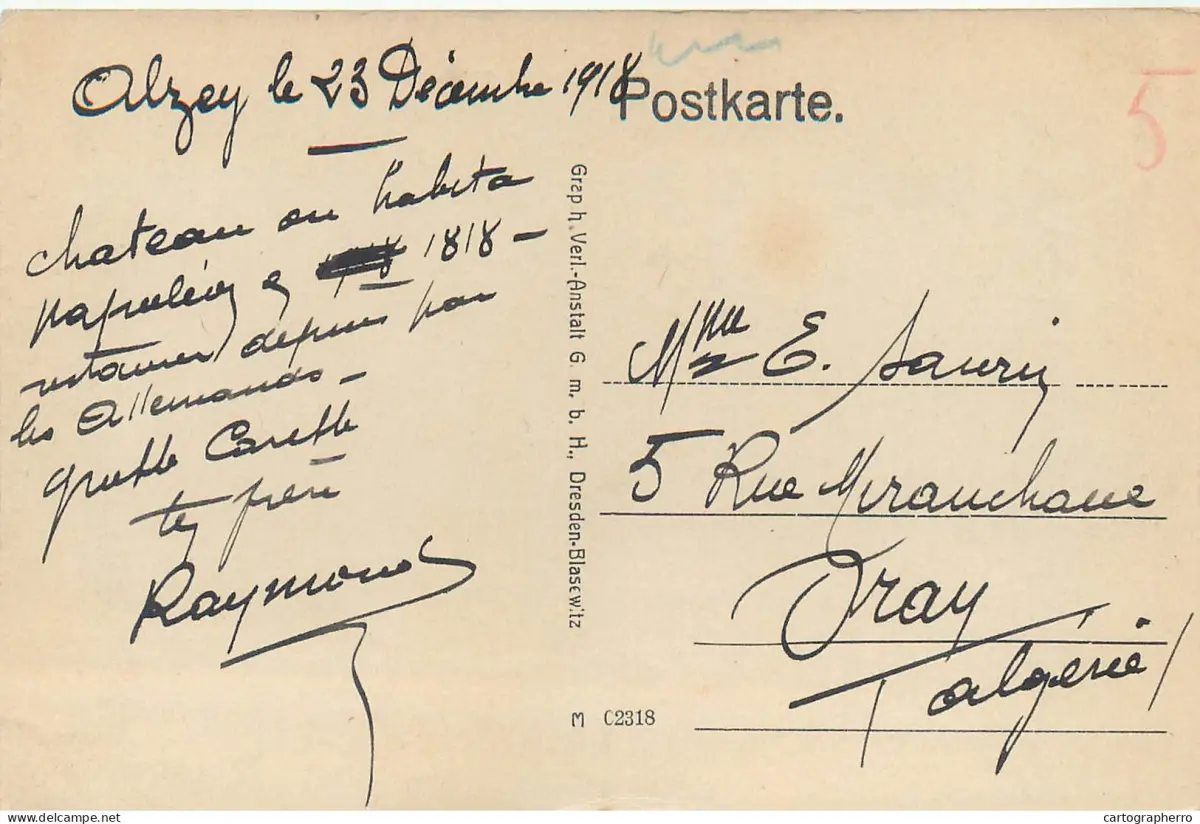 Alzey le 23 Décembre 1918
Postkarte.
5
chateau ou habita
napoléon en 1818 -
restaurer depuis par
les Allemands -
grosse Caresse
ton frère
Raymond
Graph. Verl.-Anstalt G. m. b. H., Dresden-Blasewitz
M C2318
Mme E. Saurin
5 Rue
Oran
Algérie
cartographerro